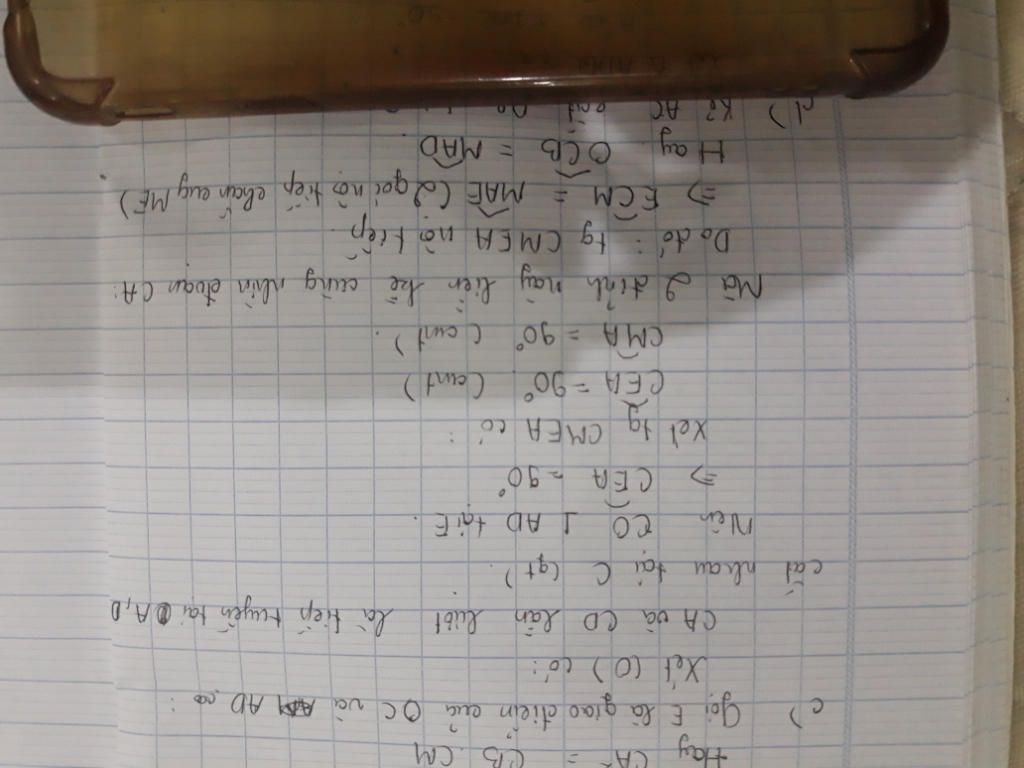 Hay CA² = CB.CM
c) Gọi E là giao điểm của OC và AD có :
Xét (O) có :
CA và CD lần lượt là tiếp tuyến tại A, D
cắt nhau tại C (gt).
Nên CO ⊥ AD tại E.
⇒ CEA = 90°
Xét tg CMEA có :
CEA = 90° (cmt)
CMA = 90° (cmt).
Mà 2 đỉnh này liên kề cùng nhìn đoạn CA.
Do đó : tg CMEA nội tiếp.
⇒ ECM = MAE (2 góc nội tiếp chắn cung ME)
Hay OCB = MAD
d) Kẻ AC cắt